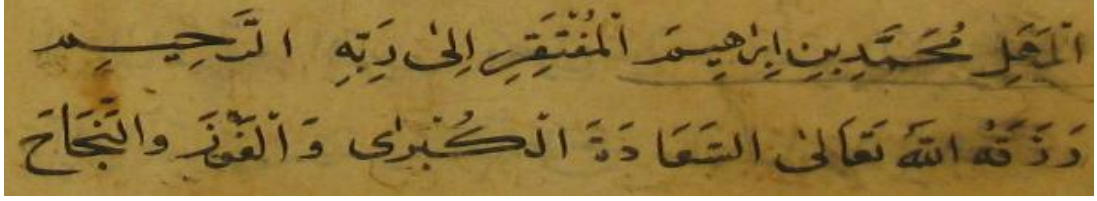 الْمَحَلِ مُحَمَّدِ بِنِ اِبْرٰهِيمَ الْمُفْتَقِرِ اِلىٰ رَبِّهِ الرَّحِيمِ
رَزَقَهُ اللّٰهُ تَعَالىٰ السَّعَادَةَ الْكُبْرٰى وَالْفَوْزَ والنَّجَاحَ